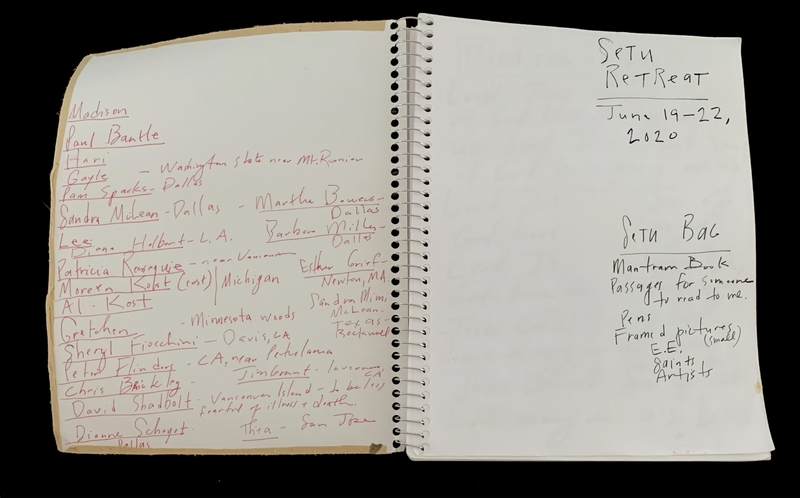 Madison
Paul Bantle
Hari
Gayle - Washington state near Mt. Rainier
Pam Sparks - Dallas
Sandra McLean - Dallas - Martha Bowers - Dallas
Lee Barbara Miller - Dallas
Diana Holbert - L.A.
Patricia - near Vancouver
Kost (cost) | Michigan
Al. Kost
Esther - Newton, MA
Gretchen - Minnesota woods
Sandra
McLean -
Texas -
Rockwall
Sheryl Fiocchini - Davis, CA
Peter Flinders - CA, near Petaluma
Chris - Jim Grant - CA
David Shadbolt - Vancouver Island - to be less
fearful of illness & death
Dianne Thea - San Jose
Dallas
SETU
RETREAT
June 19-22,
2020
SETU BAG
Mantram Book
Passages for someone
to read to me.
Pens
Framed pictures
(small)
E.E.
Saints
Artists